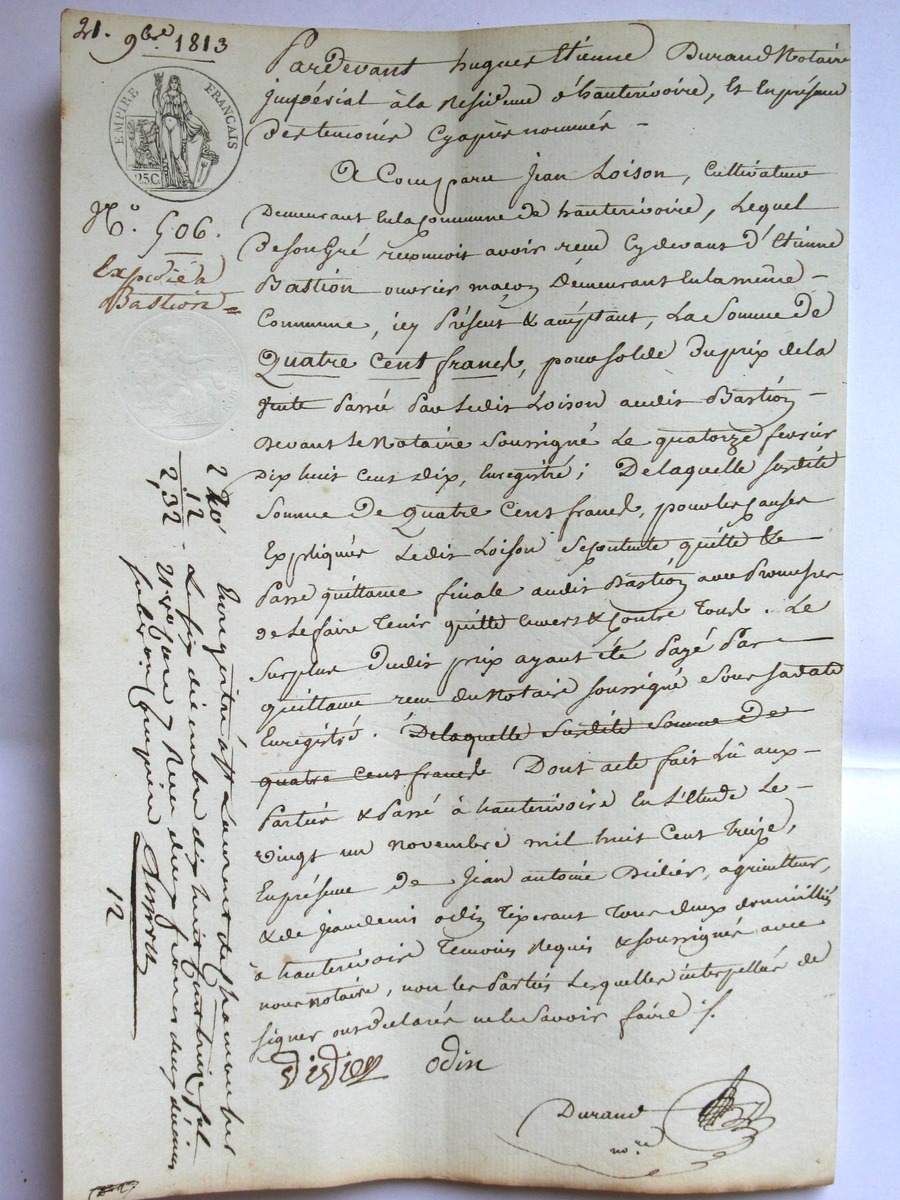 21. 9bre 1813
EMPIRE FRANÇAIS
25C.
No. 506.
Expédié à
Bastion
Pardevant hugues Etienne Durand Notaire
impérial à la Residence d'hauterivoire, Et En présence
des temoins Cyaprès nommés -
A Comparu jean Loison, Cultivateur
Demeurant En la Commune de hauterivoire, Lequel
De son Gré reconnoit avoir recu Cydevant d'Etienne
Bastion ouvrier maçon Demeurant En la même -
Commune, icy Présent & acceptant, La Somme De
Quatre Cent francs, pour solde Du prix de la
vente Passée Par Ledit Loison audit Bastion -
Devant le Notaire Soussigné Le quatorze fevrier
Dix huit Cent Dix, Enregistré ; De laquelle susdite
Somme De Quatre Cent francs, pour les causes
Expliquées Ledit Loison Se contente quitte &
Passe quittance finale audit Bastion avec Promesse
de Le faire Tenir quitte Envers & Contre Tous. Le
Surplus Dudit prix ayant été Payé Par
quittance recu du Notaire soussigné Sous sa date
Enregistré. De laquelle Susdite Somme De
quatre Cent francs Dont acte fait Lû aux -
Parties & Passé à hauterivoire En L'Etude Le -
vingt un novembre mil huit Cent Treize,
En présence De Jean antoine Didier, agriculteur,
& de jean denis odin Tixerant Tous deux domiciliés
à hauterivoire Temoins Requis & soussignés avec
nous Notaire, non les Parties Lesquelles interpellées de
signer ont Déclaré ne le Savoir faire ./.
Didier odin
Durand
nore
2 20
12
2,32
Enregistré à St Laurent de Chamousset
Le six décembre dix huit Cent treize fol
21 vo Case 7 Reçu deux francs deux décimes
12